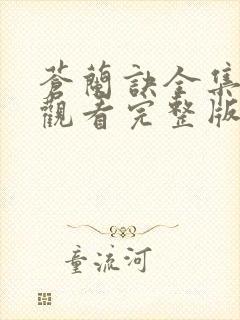 蒼蘭訣全集
觀看完整版
童流河